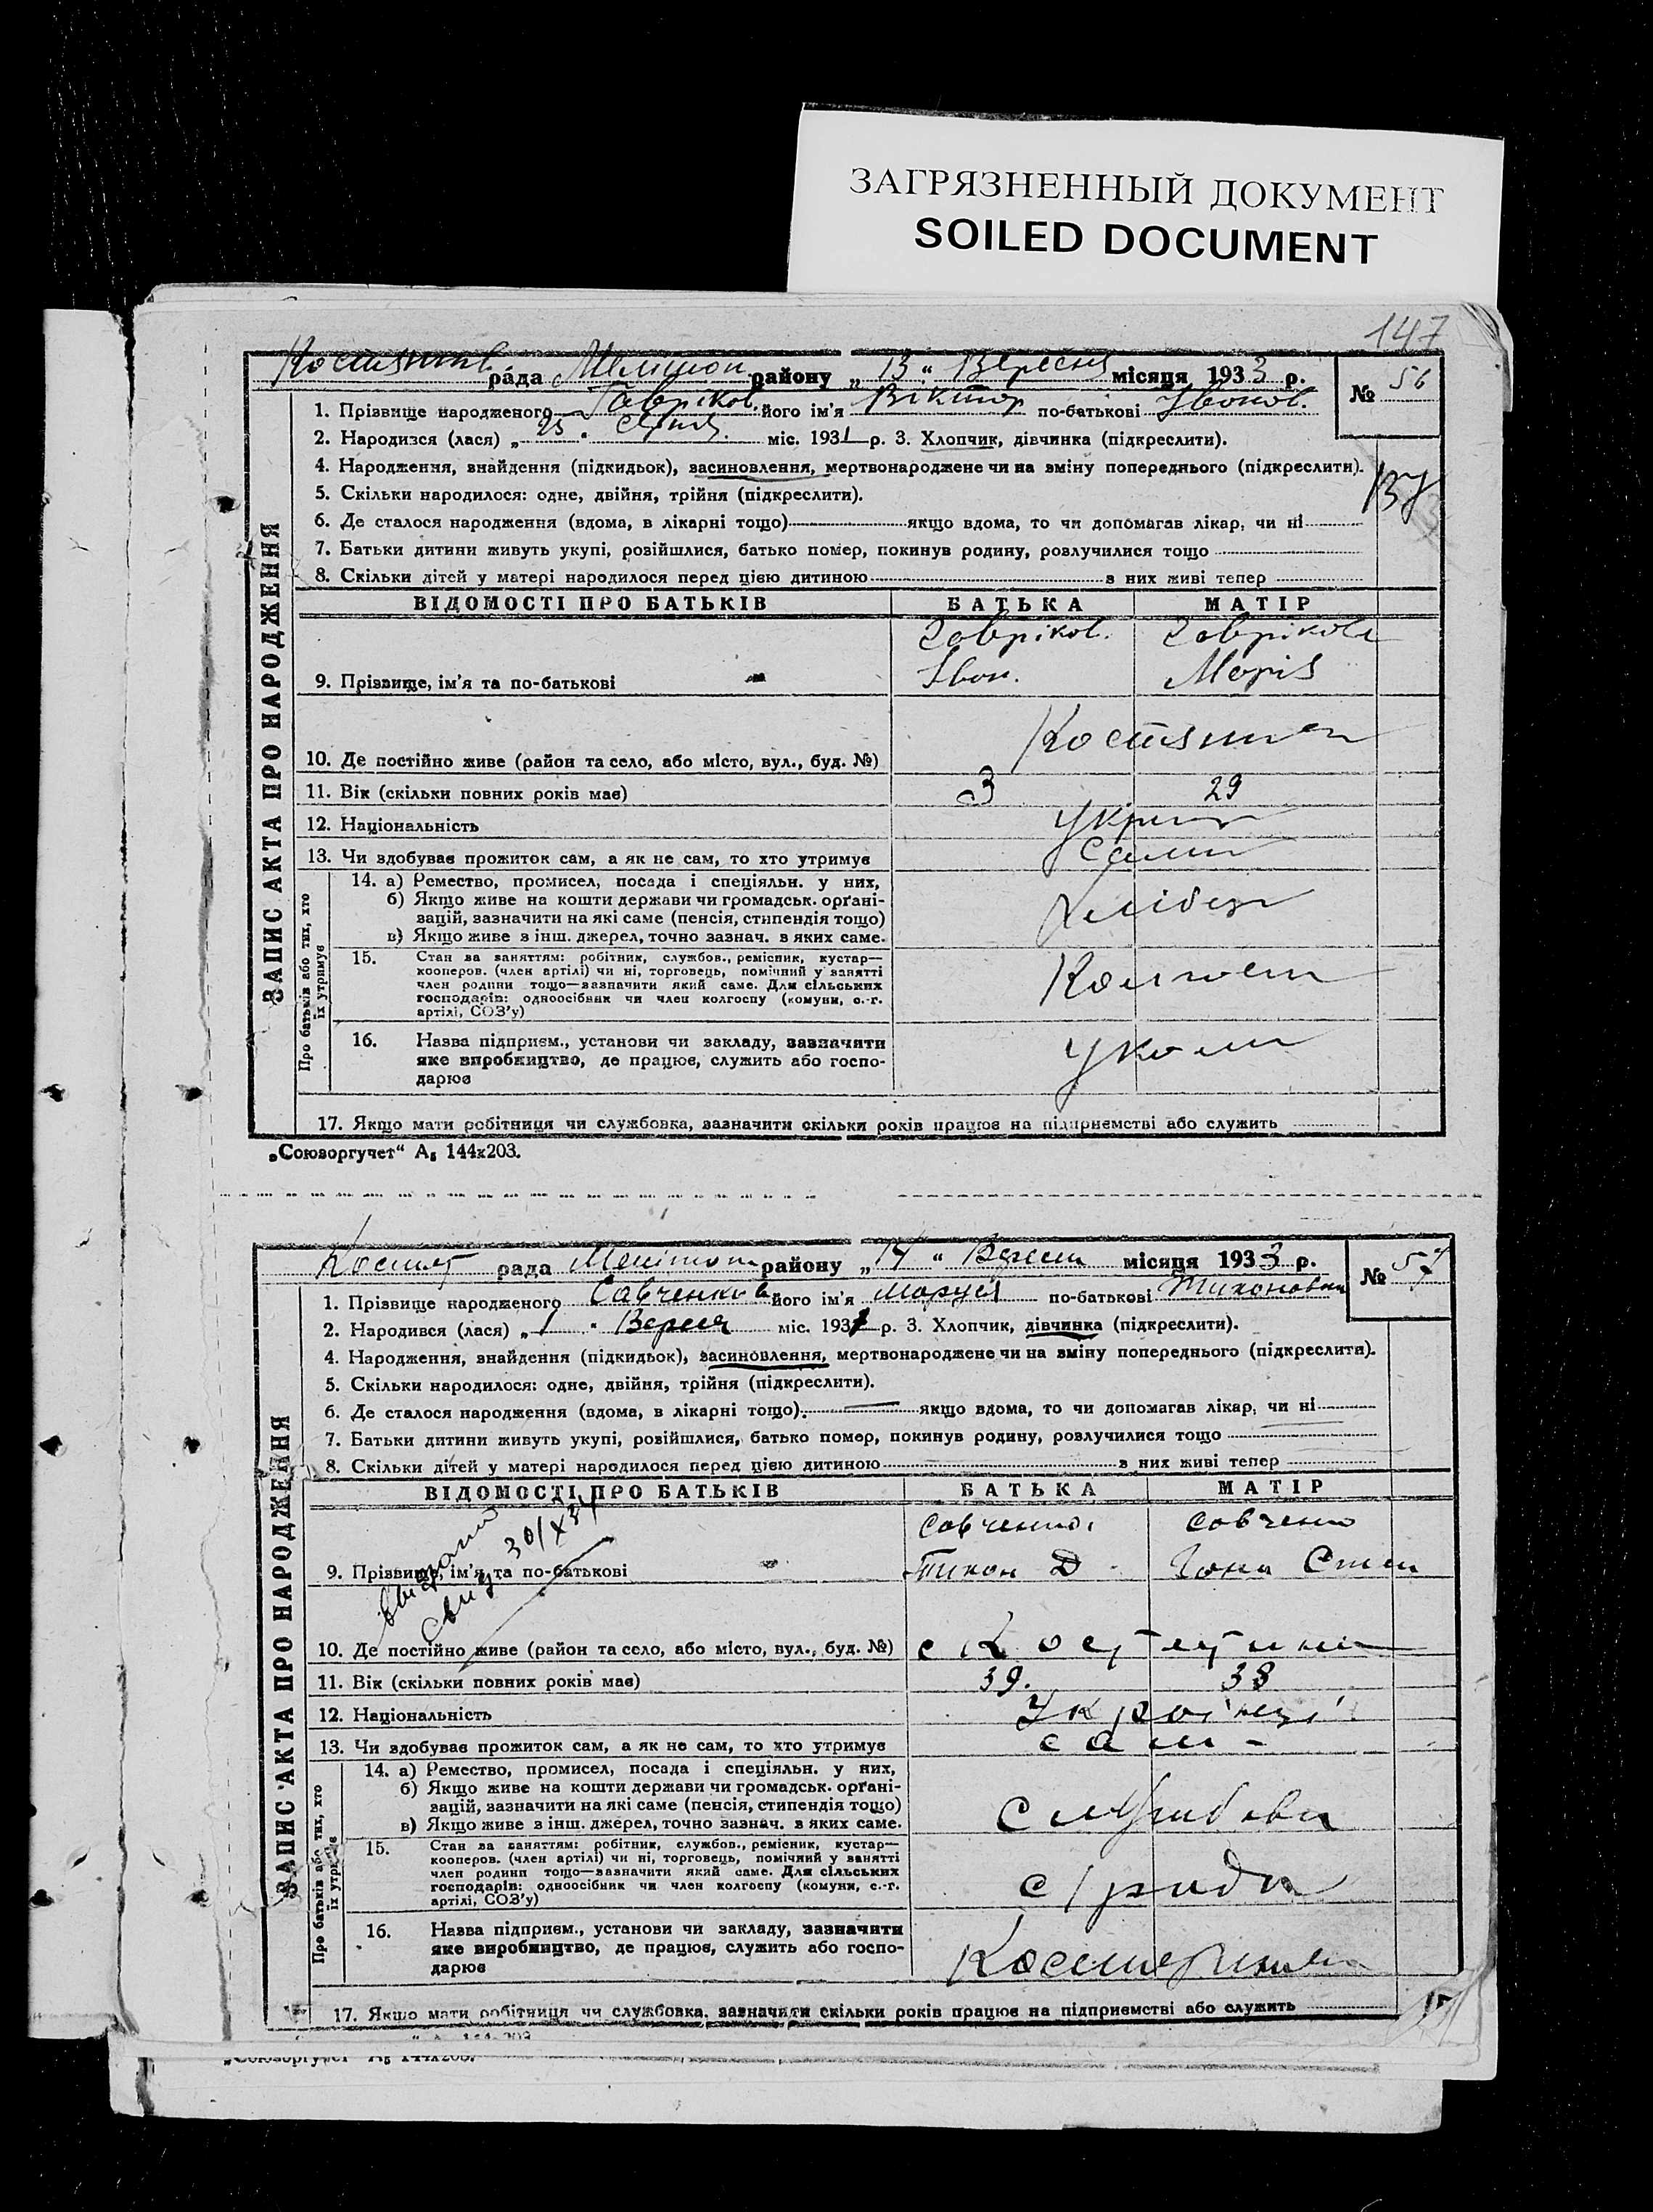 ЗАГРЯЗНЕННЫЙ ДОКУМЕНТ
SOILED DOCUMENT
147
рада Мелітоп району „ 13 “ Вересня місяця 1933 р.
№ 56
ЗАПИС АКТА ПРО НАРОДЖЕННЯ
1. Прізвище народженого Гавріков. його ім'я Віктор по-батькові Іванов.
2. Народився (лася) „ 25 “ міс. 1931 р. 3. Хлопчик, дівчинка (підкреслити).
4. Народження, знайдення (підкидьок), засиновлення, мертвонароджене чи на зміну попереднього (підкреслити).
5. Скільки народилося: одне, двійня, трійня (підкреслити).
6. Де сталося народження (вдома, в лікарні тощо) якщо вдома, то чи допомагав лікар, чи ні
7. Батьки дитини живуть укупі, розійшлися, батько помер, покинув родину, розлучилися тощо
8. Скільки дітей у матері народилося перед цією дитиною з них живі тепер
ВІДОМОСТІ ПРО БАТЬКІВ БАТЬКА МАТІР
Гавріков. Гаврікова
9. Прізвище, ім'я та по-батькові Іван. Марія
10. Де постійно живе (район та село, або місто, вул., буд. №)
11. Вік (скільки повних років має) 29
12. Національність
13. Чи здобуває прожиток сам, а як не сам, то хто утримує
Про батьків або тих, хто їх утримує
14. а) Ремество, промисел, посада і спеціяльн. у них,
б) Якщо живе на кошти держави чи громадськ. органі-
зацій, зазначити на які саме (пенсія, стипендія тощо)
в) Якщо живе з інш. джерел, точно зазнач. з яких саме.
15. Стан за заняттям: робітник, службов., ремісник, кустар—
кооперов. (член артілі) чи ні, торговець, помічний у занятті
член родини тощо—зазначити який саме. Для сільських
господарів: одноосібник чи член колгоспу (комуни, с.-г.
артілі, СОЗ'у)
16. Назва підприєм., установи чи закладу, зазначити
яке виробництво, де працює, служить або госпо-
дарює
17. Якщо мати робітниця чи службовка, зазначити скільки років працює на підприємстві або служить
„Союзоргучет“ А5 144х203.
рада Мелітоп району „ 14 “ Верес місяця 1933 р.
№ 57
ЗАПИС АКТА ПРО НАРОДЖЕННЯ
1. Прізвище народженого Савченкова його ім'я Маруся по-батькові Тихоновна
2. Народився (лася) „ 1 “ Вересня міс. 193 р. 3. Хлопчик, дівчинка (підкреслити).
4. Народження, знайдення (підкидьок), засиновлення, мертвонароджене чи на зміну попереднього (підкреслити).
5. Скільки народилося: одне, двійня, трійня (підкреслити).
6. Де сталося народження (вдома, в лікарні тощо). якщо вдома, то чи допомагав лікар, чи ні
7. Батьки дитини живуть укупі, розійшлися, батько помер, покинув родину, розлучилися тощо
8. Скільки дітей у матері народилося перед цією дитиною з них живі тепер
ВІДОМОСТІ ПРО БАТЬКІВ БАТЬКА МАТІР
Савченко Савченко
9. Прізвище, ім'я та по-батькові Тихон Д
10. Де постійно живе (район та село, або місто, вул., буд. №)
11. Вік (скільки повних років має) 39. 38
12. Національність Українці
13. Чи здобуває прожиток сам, а як не сам, то хто утримує сам -
Про батьків або тих, хто їх утримує
14. а) Ремество, промисел, посада і спеціяльн. у них,
б) Якщо живе на кошти держави чи громадськ. органі-
зацій, зазначити на які саме (пенсія, стипендія тощо)
в) Якщо живе з інш. джерел, точно зазнач. з яких саме.
15. Стан за заняттям: робітник, службов., ремісник, кустар—
кооперов. (член артілі) чи ні, торговець, помічний у занятті
член родини тощо—зазначити який саме. Для сільських
господарів: одноосібник чи член колгоспу (комуни, с.-г.
артілі, СОЗ'у)
с/рада
16. Назва підприєм., установи чи закладу, зазначити
яке виробництво, де працює, служить або госпо-
дарює
17. Якщо мати робітниця чи службовка, зазначити скільки років працює на підприємстві або служить
„Союзоргучет“ А5 144х203.